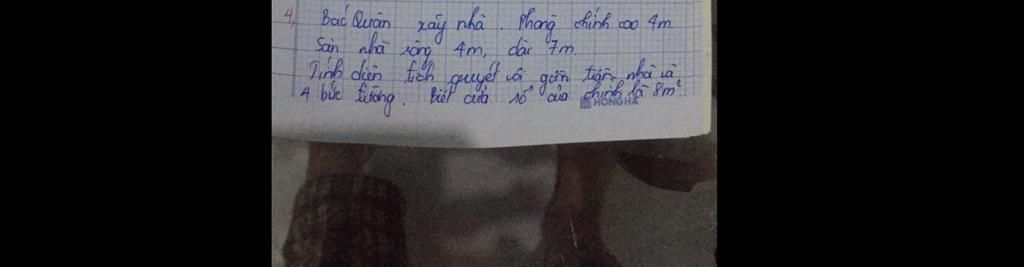 4, Bác Quân xây nhà. Phòng chính cao 4m
Sàn nhà rộng 4m, dài 7m
Tính diện tích quyét vôi gồm trần nhà và
4 bức tường. Biết cửa sổ cửa chính là 8m²
HONG HA